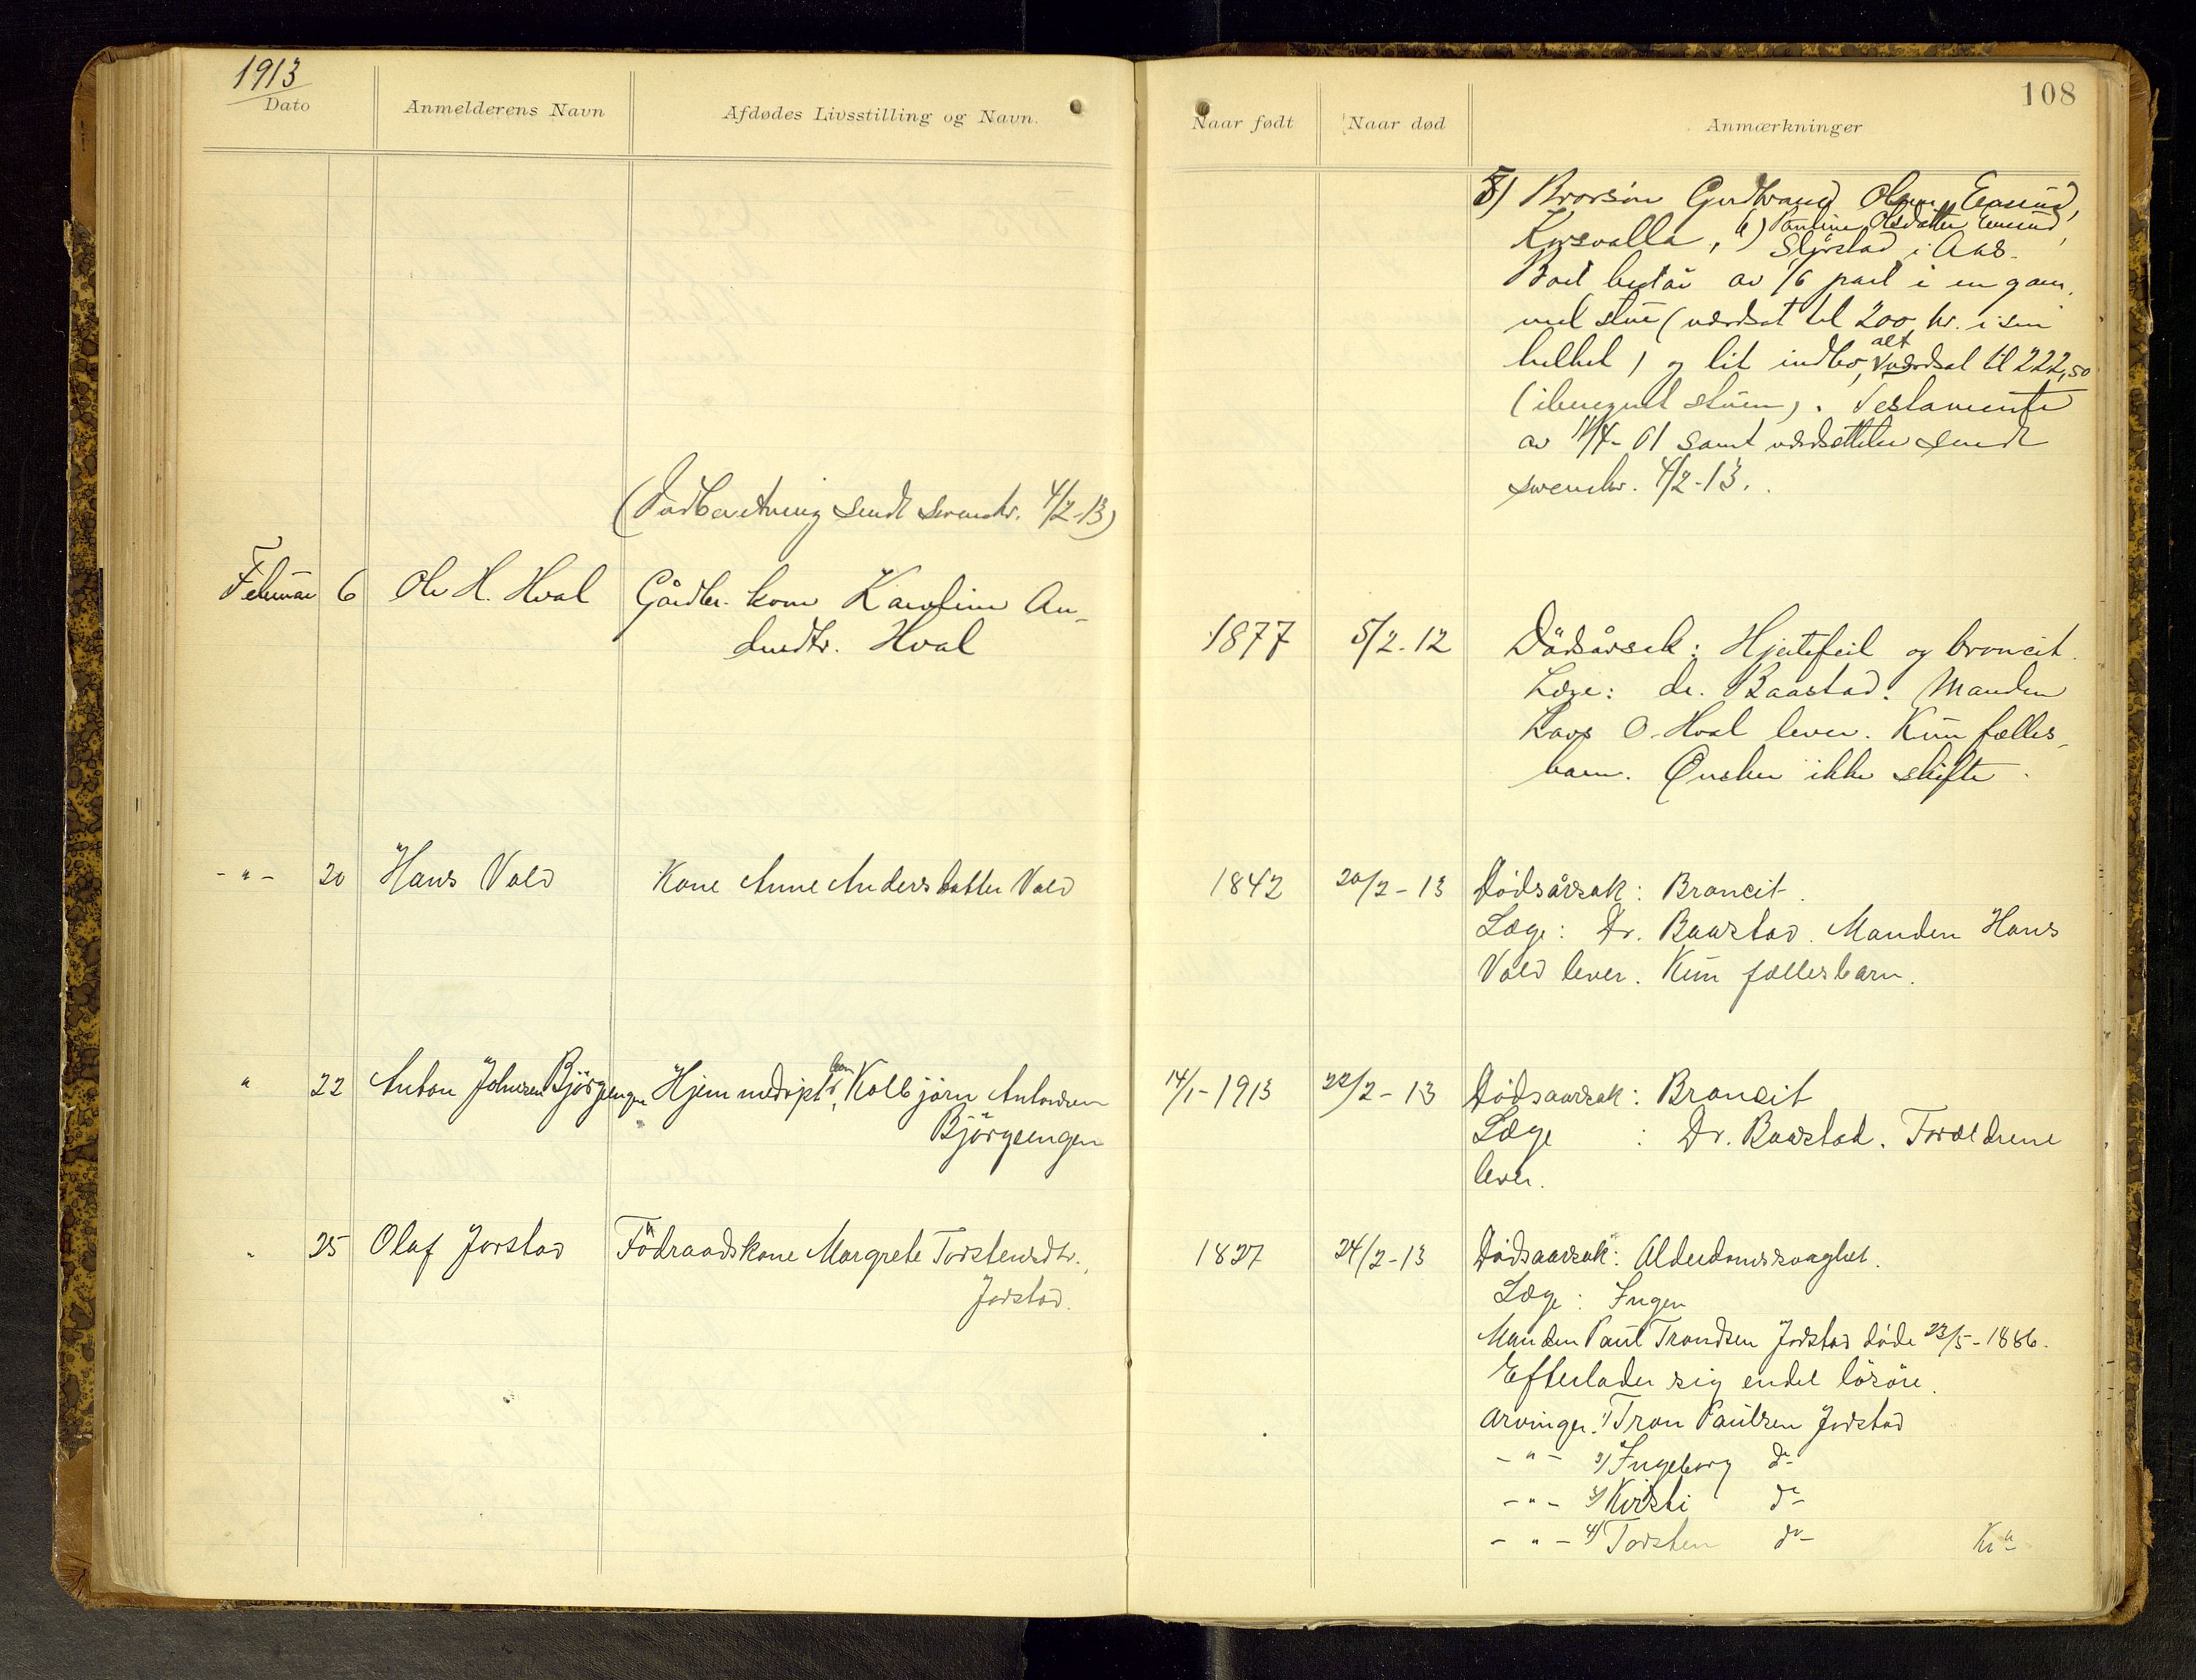 1913
108
Dato
Anmelderens Navn
Afdødes Livsstilling og Navn.
Naar født
Naar død
Anmærkninger
5) Brorsøn Gudbrand Olsen
Korsvalla, 6) Pauline Olsdatter
i Aas.
Boet består av 1/6 part i en gam
mel stue (værdsat til 200 kr. i sin
helhet) og lit indbo, alt værdsat til 222,50
(iberegnet stuen). Testamente
av 11/4-01 samt sendt
sorenskr. 4/2-13.
(Indberetning sendt sorenskr. 4/2-13)
Februar 6 Ole H. Hval Gårdbr. kone Karoline An-
dersdtr. Hval
1877 5/2-12 Dödsårsak: Hjertefeil og broncit.
Læge: dr. Baastad. Manden
Lars O. Hval lever. Kun fælles-
barn. Ønsker ikke skifte.
-"- 20 Hans Vold Kone Anne Andersdatter Vold 1842 20/2-13 Dødsårsak: Broncit.
Læge: Dr. Baastad. Manden Hans
Vold lever. Kun fællesbarn.
" 22 Anton Johnsen Björgeengen Hjemmedöpt barn, Kolbjörn Antonsen 14/1-1913 22/2-13 Dødsaarsak: Broncit
Björgeengen
Læge : Dr. Baastad. Forældrene
lever.
" 25 Olaf Jorstad Födraadskone Margrete Torstensdtr. 1827 24/2-13 Dødsaarsak: Alderdomssvaghet.
Jorstad.
Læge: Ingen
Manden Paul Trondsen Jorstad døde 23/5-1886.
Efterlader sig endel løsøre.
Arvinger: 1) Tron Paulsen Jorstad
-"- 2) Ingeborg do
-"- 3) Kirsti do
-"- 4) Torsten do Kra